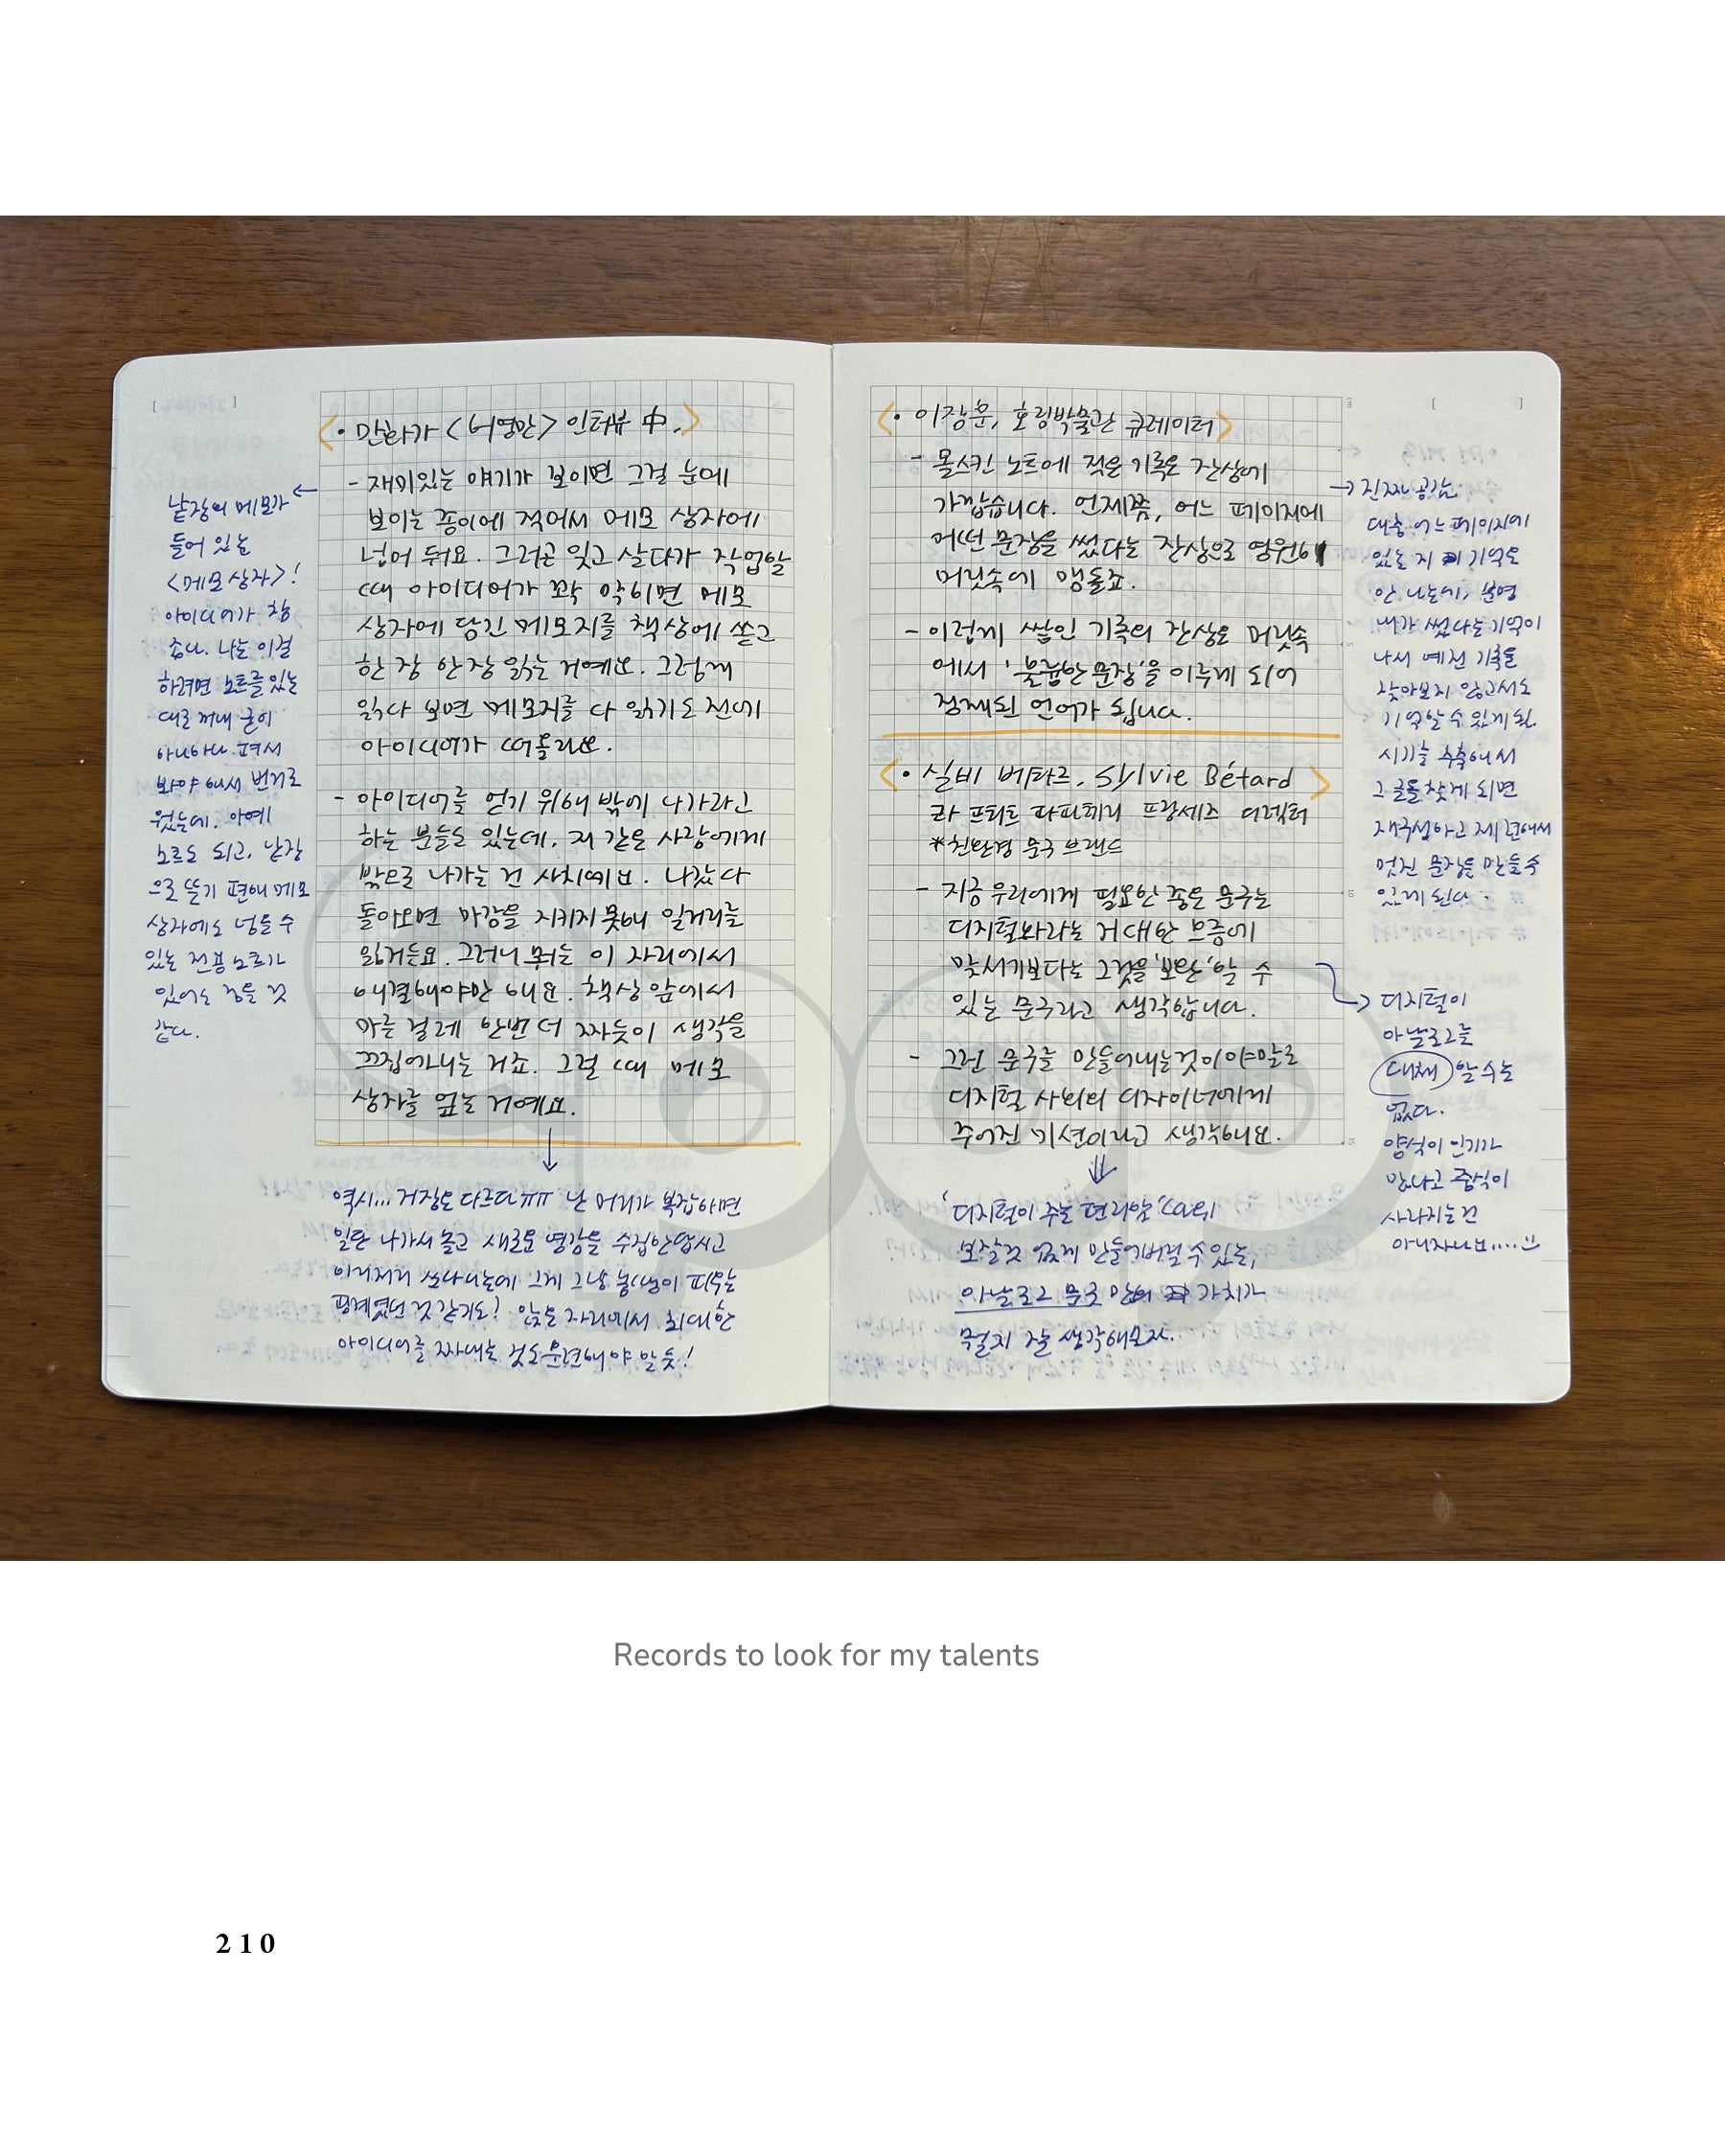 • 만화가 <허영만> 인터뷰 中.
- 재미있는 얘기가 보이면 그걸 눈에
보이는 종이에 적어서 메모 상자에
넣어 둬요. 그러곤 잊고 살다가 작업할
때 아이디어가 꽉 막히면 메모
상자에 담긴 메모지를 책상에 쏟고
한 장 한 장 읽는 거예요. 그렇게
읽다 보면 메모지를 다 읽기도 전에
아이디어가 떠올라요.
- 아이디어를 얻기 위해 밖에 나가라고
하는 분들도 있는데, 저 같은 사람에게
밖으로 나가는 건 사치예요. 나갔다
돌아오면 마감을 지키지 못해 일거리를
잃거든요. 그러니 뭐든 이 자리에서
해결해야만 해요. 책상 앞에서
마른 걸레 한번 더 짜듯이 생각을
끄집어내는 거죠. 그럴 때 메모
상자를 엎는 거예요.
낱장의 메모가
들어 있는
<메모 상자>!
아이디어가 참
좋다. 나는 이걸
하려면 노트를 있는
대로 꺼내 굳이
하나하나 펴서
봐야 해서 번거로
웠는데. 아예
노트도 되고, 낱장
으로 뜯기 편해 메모
상자에도 넣을 수
있는 전용 노트가
있어도 좋을 것
같다.
역시... 거장은 다르다ㅠㅠ 난 머리가 복잡하면
일단 나가서 놀고 새로운 영감을 수집한답시고
이리저리 쏘다니는데 그게 그냥 농땡이 피우는
핑계였던 것 같기도! 앉은 자리에서 최대한
아이디어를 짜내는 것도 훈련해야 할 듯!
• 이장훈, 호림박물관 큐레이터
- 몰스킨 노트에 적은 기록은 잔상에
가깝습니다. 언제쯤, 어느 페이지에
어떤 문장을 썼다는 잔상으로 영원히
머릿속에 맴돌죠.
- 이렇게 쌓인 기록의 잔상은 머릿속
에서 '불분명한 문장'을 이루게 되어
정제된 언어가 됩니다.
→ 진짜 공감.
대충 어느 페이지에
있는 지 기억은
안 나는데, 분명
내가 썼다는 기억이
나서 예전 기록을
찾아보지 않고서도
기억할 수 있게 됨.
시기를 추측해서
그 글을 찾게 되면
재구성하고 재편해서
멋진 문장을 만들 수
있게 된다.
• 실비 베타르, Sylvie Bétard
라 프티트 파피테리 프랑세즈 디렉터
*친환경 문구 브랜드
- 지금 우리에게 필요한 좋은 문구는
디지털화라는 거대한 흐름에
맞서기보다는 그것을 '보완'할 수
있는 문구라고 생각합니다.
- 그런 문구를 만들어내는 것이야말로
디지털 사회의 디자이너에게
주어진 미션이라고 생각해요.
디지털이
아날로그를
대체 할 수는
없다.
양식이 인기가
많다고 중식이
사라지는 건
아니자나요....
'디지털이 주는 편리함' 따위
보잘것 없게 만들어버릴 수 있는,
아날로그 문구 만의 가치가
뭘지 잘 생각해보자.
Records to look for my talents
210